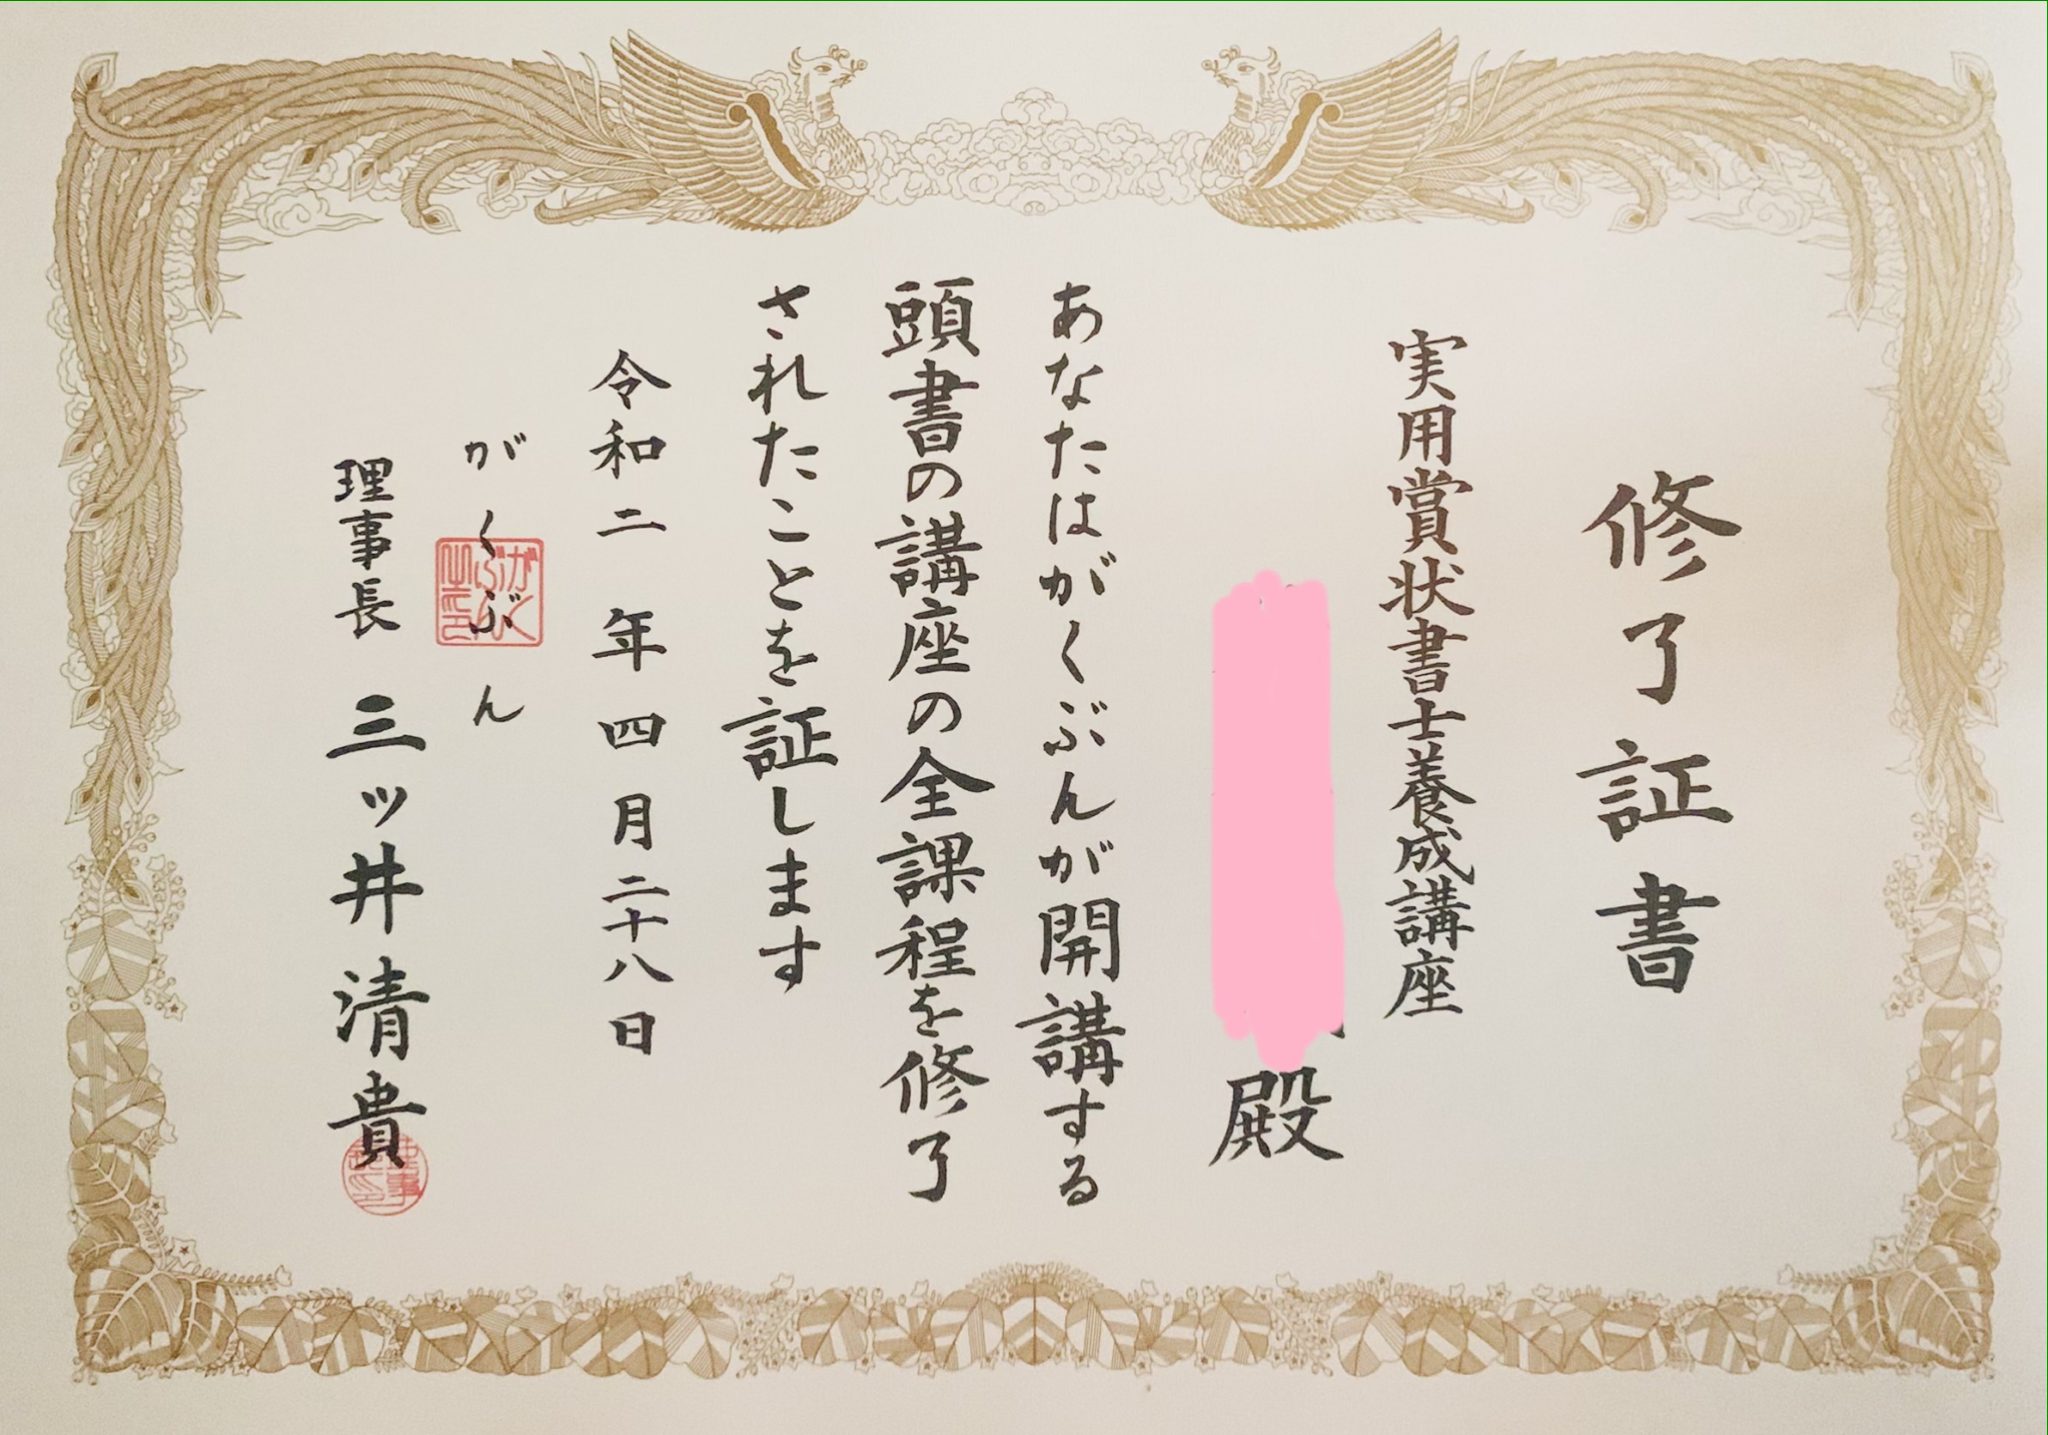 修了証書
実用賞状書士養成講座
殿
あなたはがくぶんが開講する
頭書の講座の全課程を修了
されたことを証します
令和二年四月二十八日
がくぶん
理事長 三ッ井清貴